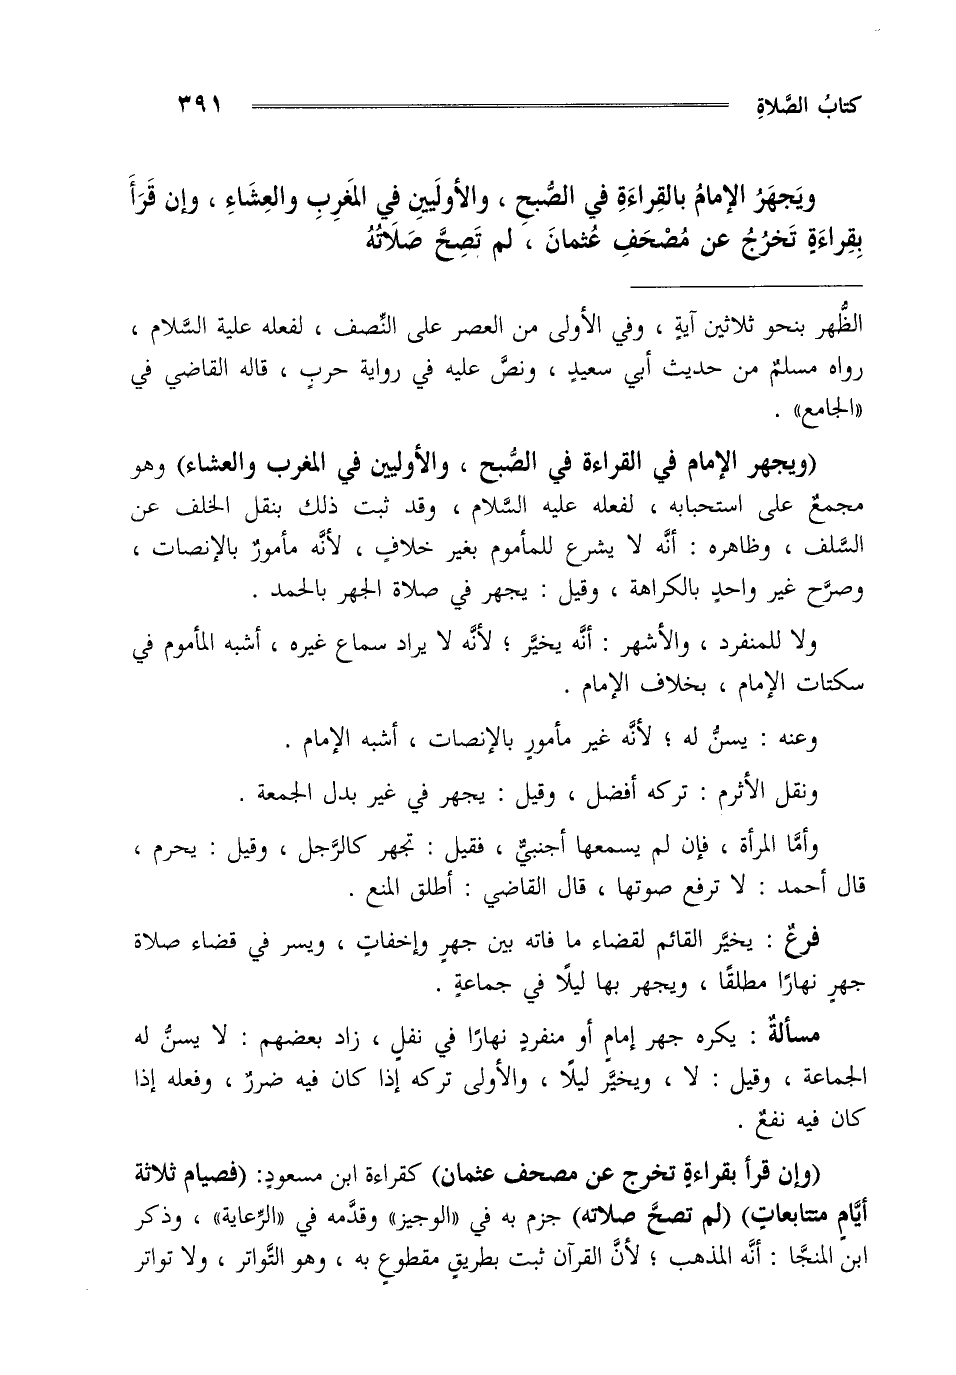 كتابُ الصَّلاةِ ٣٩١
ويَجهَرُ الإمامُ بالقِراءَةِ في الصُّبحِ ، والأولَيينِ في المَغرِبِ والعِشَاءِ ، وإن قَرَأَ
بِقِراءَةٍ تَخرُجُ عن مُصْحَفِ عُثمانَ ، لم تَصِحَّ صَلَاتُهُ
الظُّهر بنحو ثلاثين آيةٍ ، وفي الأولى من العصر على النِّصف ، لفعله علية السَّلام ،
رواه مسلمٌ من حديث أبي سعيدٍ ، ونصَّ عليه في رواية حربٍ ، قاله القاضي في
«الجامع» .
(ويجهر الإمام في القراءة في الصُّبح ، والأوليين في المغرب والعشاء) وهو
مجمعٌ على استحبابه ، لفعله عليه السَّلام ، وقد ثبت ذلك بنقل الخلف عن
السَّلف ، وظاهره : أنَّه لا يشرع للمأموم بغير خلافٍ ، لأنَّه مأمورٌ بالإنصات ،
وصرَّح غير واحدٍ بالكراهة ، وقيل : يجهر في صلاة الجهر بالحمد .
ولا للمنفرد ، والأشهر : أنَّه يخيَّر ؛ لأنَّه لا يراد سماع غيره ، أشبه المأموم في
سكتات الإمام ، بخلاف الإمام .
وعنه : يسنُّ له ؛ لأنَّه غير مأمورٍ بالإنصات ، أشبه الإمام .
ونقل الأثرم : تركه أفضل ، وقيل : يجهر في غير بدل الجمعة .
وأمَّا المرأة ، فإن لم يسمعها أجنبيٌّ ، فقيل : تجهر كالرَّجل ، وقيل : يحرم ،
قال أحمد : لا ترفع صوتها ، قال القاضي : أطلق المنع .
فرعٌ : يخيَّر القائم لقضاء ما فاته بين جهرٍ وإخفاتٍ ، ويسر في قضاء صلاة
جهرٍ نهارًا مطلقًا ، ويجهر بها ليلًا في جماعةٍ .
مسألةٌ : يكره جهر إمامٍ أو منفردٍ نهارًا في نفلٍ ، زاد بعضهم : لا يسنُّ له
الجماعة ، وقيل : لا ، ويخيَّر ليلًا ، والأولى تركه إذا كان فيه ضررٌ ، وفعله إذا
كان فيه نفعٌ .
(وإن قرأ بقراءةٍ تخرج عن مصحف عثمان) كقراءة ابن مسعودٍ: (فصيام ثلاثة
أيَّامٍ متتابعاتٍ) (لم تصحَّ صلاته) جزم به في «الوجيز» وقدَّمه في «الرِّعاية» ، وذكر
ابن المنجَّا : أنَّه المذهب ؛ لأنَّ القرآن ثبت بطريقٍ مقطوعٍ به ، وهو التَّواتر ، ولا تواتر